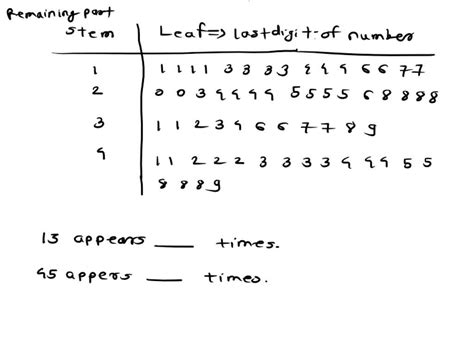 Remaining part
stem Leaf => last digit of number
1 1 1 1 1 3 3 3 3 4 4 4 6 6 7 7
2 0 0 3 4 4 4 4 5 5 5 5 6 8 8 8 8
3 1 1 2 3 4 6 6 7 7 8 9
4 1 1 2 2 2 3 3 3 3 4 4 4 5 5
8 8 8 9
13 appears ___ times.
45 appers ___ times.